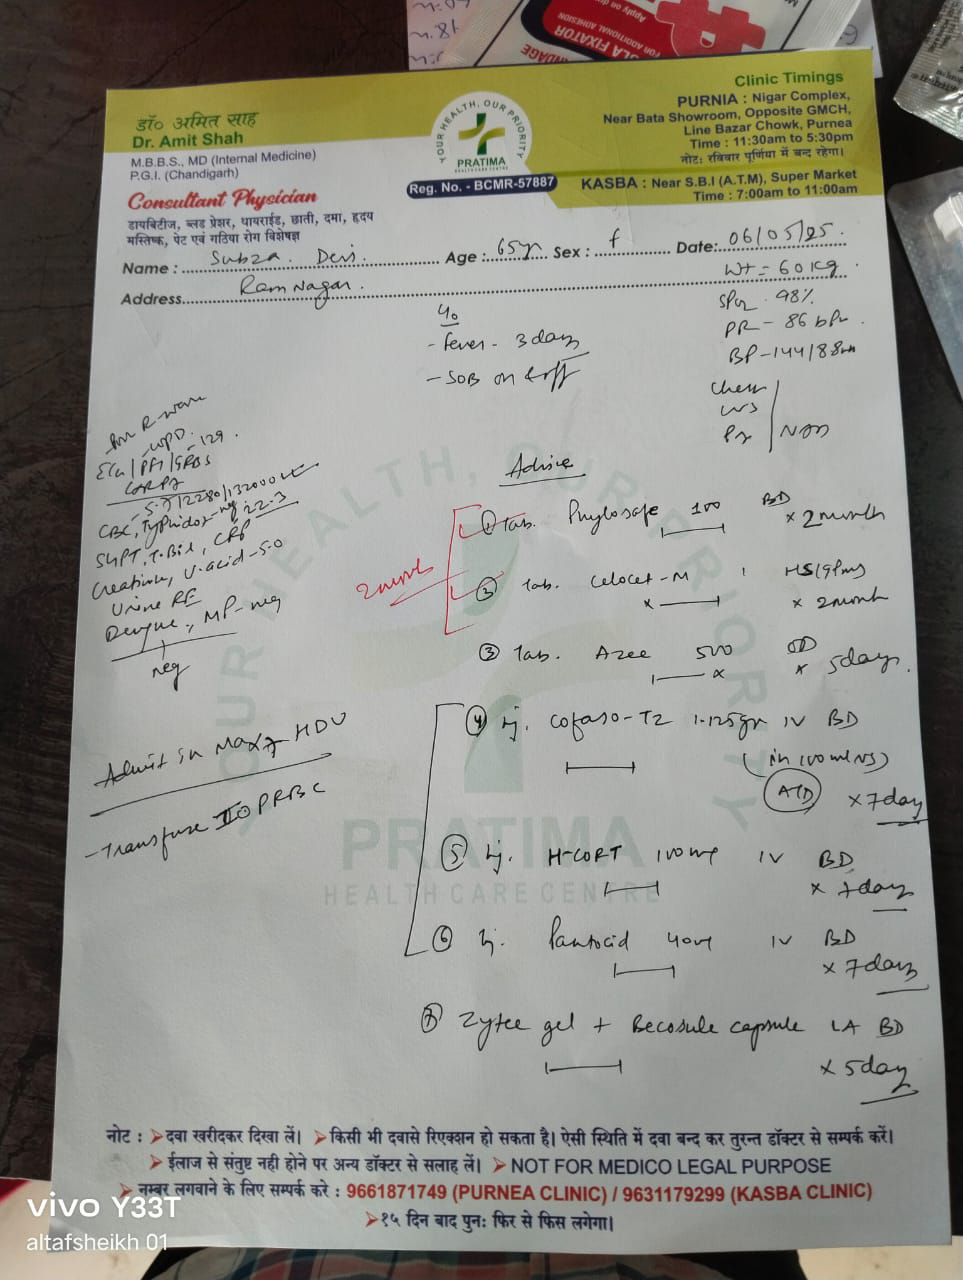 LA FIXATOR
FOR ADDITIONAL ADHESION
डॉ० अमित साह
Dr. Amit Shah
M.B.B.S., MD (Internal Medicine)
P.G.I. (Chandigarh)
Consultant Physician
डायबिटीज, ब्लड प्रेशर, थायराईड, छाती, दमा, हृदय
मस्तिष्क, पेट एवं गठिया रोग विशेषज्ञ
YOUR HEALTH, OUR PRIORITY
PRATIMA
HEALTH CARE CENTRE
Reg. No. - BCMR-57887
Clinic Timings
PURNIA : Nigar Complex,
Near Bata Showroom, Opposite GMCH,
Line Bazar Chowk, Purnea
Time : 11:30am to 5:30pm
नोट: रविवार पूर्णिया में बन्द रहेगा।
KASBA : Near S.B.I (A.T.M), Super Market
Time : 7:00am to 11:00am
Name : Subza Devi Age : 65yr Sex : f Date: 06/05/25
Address Ram Nagar
Wt = 60 kg
SPO2 98%
PR - 86 bpm
BP - 144/88
c/o
- Fever - 3 days
- SOB on & off
Chest
CVS
P/A NAD
ECG / PFT / GRBS - 129
CBC - 5.7/2280/132000
Typhidot - neg
SGPT, T.Bil, CRP 22.3
Creatinine, U.acid - 5.0
Urine RE
Dengue, MP - neg
neg
Admit in Max 7 HDU
- Transfuse II O PRBC
Advice
① Tab. Phylosafe 100 BD x 2 month
② Tab. Celocet-M 1 HS/9pm x 2 month
③ Tab. Azee 500 OD x 5 days
④ Inj. Cofaso-TZ 1.125gm IV BD
(in 100 ml NS)
ATD x 7 day
⑤ Inj. H-CORT 100 mg IV BD x 7 day
⑥ Inj. Pantocid 40 mg IV BD x 7 day
⑦ Zytee gel + Becosule capsule LA BD x 5 day
PRATIMA
HEALTH CARE CENTRE
नोट : ➤दवा खरीदकर दिखा लें। ➤किसी भी दवासे रिएक्शन हो सकता है। ऐसी स्थिति में दवा बन्द कर तुरन्त डॉक्टर से सम्पर्क करें।
➤ईलाज से संतुष्ट नही होने पर अन्य डॉक्टर से सलाह लें। ➤NOT FOR MEDICO LEGAL PURPOSE
➤नम्बर लगवाने के लिए सम्पर्क करे : 9661871749 (PURNEA CLINIC) / 9631179299 (KASBA CLINIC)
➤१५ दिन बाद पुनः फिर से फिस लगेगा।
vivo Y33T
altafsheikh 01